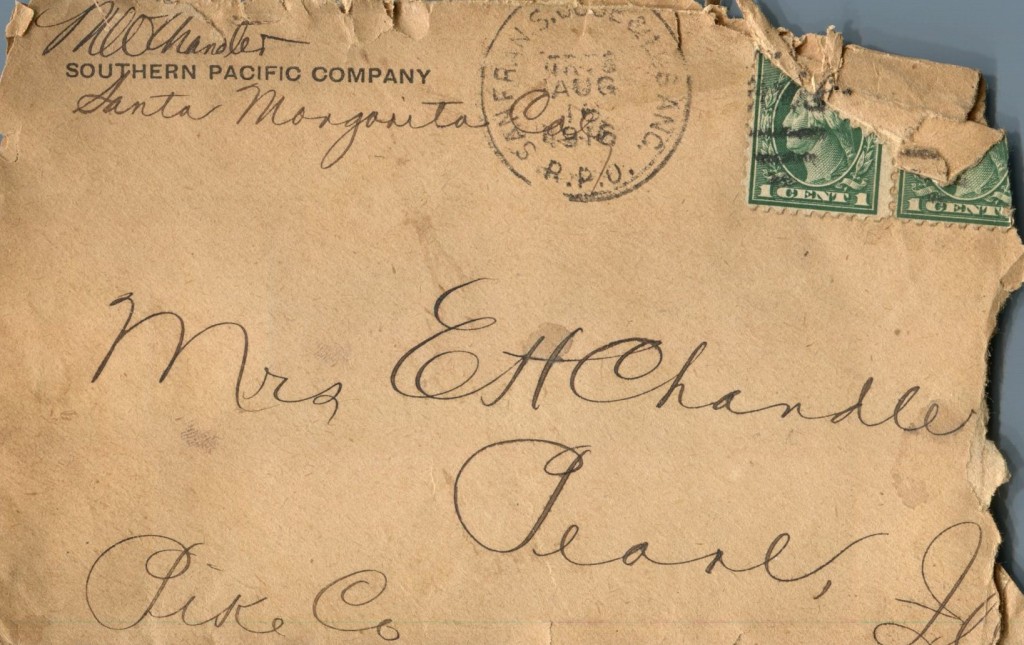 Chandler
SOUTHERN PACIFIC COMPANY
Santa Margarita Cal
SAN FRAN S. JOSE & LOS ANG.
AUG
1916
R.P.O.
1 CENT 1
1 CENT
Mrs E H Chandle
Pearl, Il
Pike Co